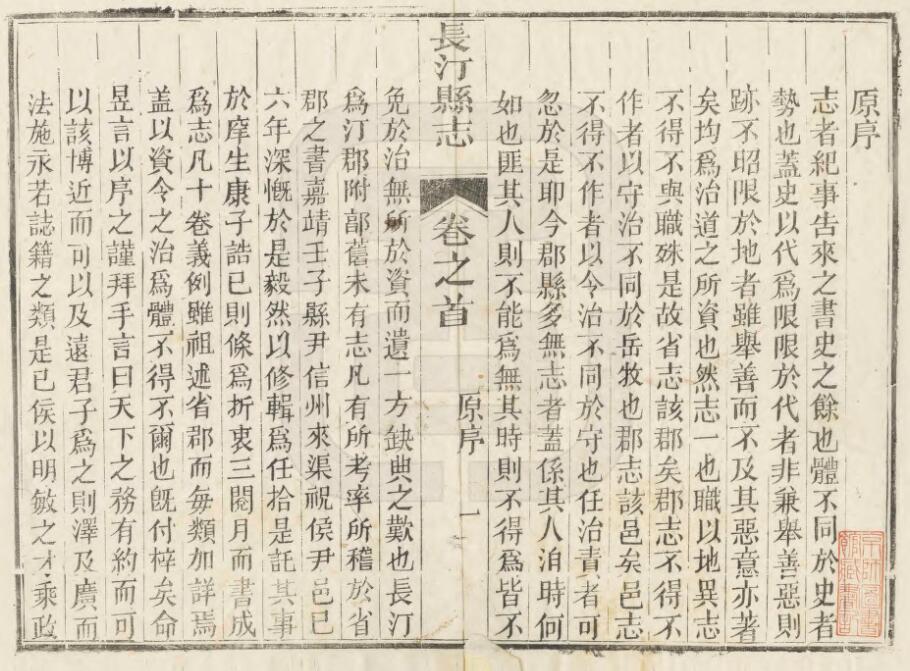 原序
志者紀事告來之書史之餘也體不同於史者
勢也蓋史以代爲限限於代者非兼舉善惡則
跡不昭限於地者雖舉善而不及其惡意亦著
矣均爲治道之所資也然志一也職以地異志
不得不與職殊是故省志該郡矣郡志不得不
作者以守治不同於岳牧也郡志該邑矣邑志
不得不作者以令治不同於守也任治責者可
忽於是耶今郡縣多無志者蓋係其人洎時何
如也匪其人則不能爲無其時則不得爲皆不
長汀縣志
卷之首
原序
一
免於治無所於資而遺一方缺典之歎也長汀
爲汀郡附郭舊未有志凡有所考率所稽於省
郡之書嘉靖壬子縣尹信州來渠祝侯尹邑已
六年深慨於是毅然以修輯爲任拾是託其事
於庠生康子誥已則條爲折衷三閱月而書成
爲志凡十卷義例雖祖述省郡而每類加詳焉
蓋以資令之治爲體不得不爾也旣付梓矣命
昱言以序之謹拜手言曰天下之務有約而可
以該博近而可以及遠君子爲之則澤及廣而
法施永若誌籍之類是已侯以明敏之才乘政